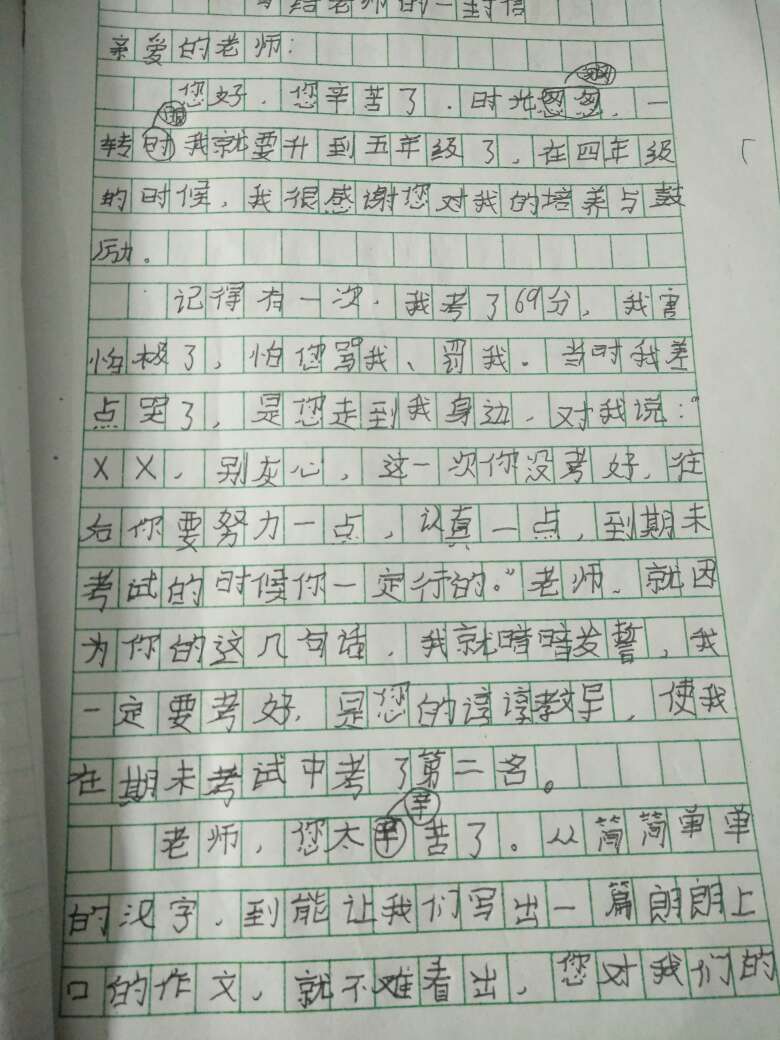 写给老师的一封信
亲爱的老师:
您好,您辛苦了,时光匆匆,一
转眼我就要升到五年级了,在四年级
的时候,我很感谢您对我的培养与鼓
励。
记得有一次,我考了69分,我害
怕极了,怕您骂我、罚我。当时我差
点哭了,是您走到我身边,对我说:“
XX,别灰心,这一次你没考好,往
后你要努力一点,认真一点,到期未
考试的时候你一定行的。”老师,就因
为你的这几句话,我就暗暗发誓,我
一定要考好,是您的谆谆教导,使我
在期未考试中考了第二名。
老师,您太辛苦了。从简简单单
的汉字,到能让我们写出一篇朗朗上
口的作文,就不难看出,您对我们的